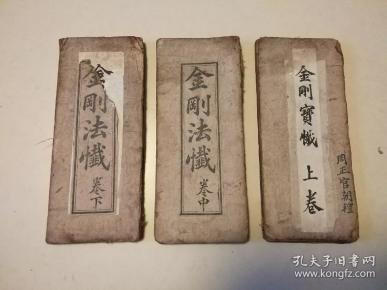 金剛法懺
卷下
金剛法懺
卷中
金剛寶懺 上卷
孔夫子旧书网
www.kongfz.com